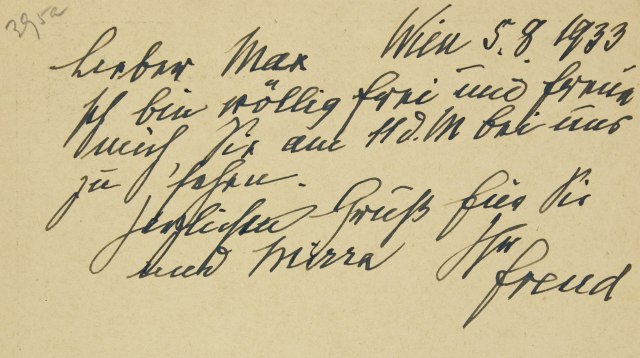 395a
Wien 5.8.1933
Lieber Max
Ich bin völlig frei und freue
mich, Sie am 11 d. M bei uns
zu sehen.
Herzlichen Gruß für Sie
und Mirra Ihr
Freud